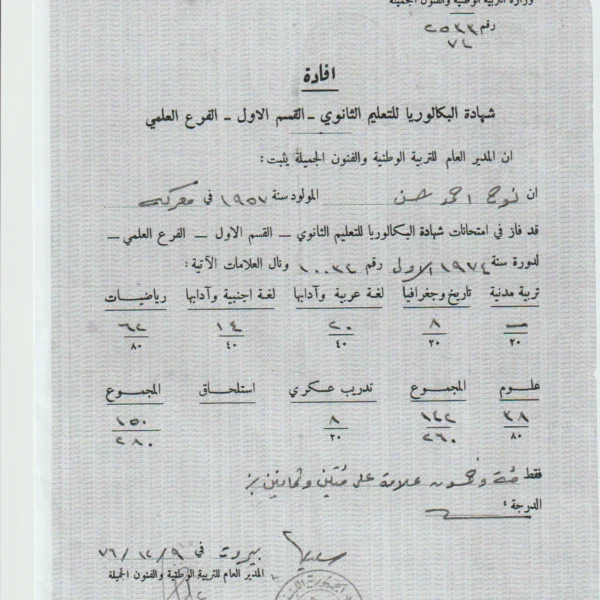 وزارة التربية الوطنية والفنون الجميلة
رقم ٢٥٣٣
٧٤
افادة
شهادة البكالوريا للتعليم الثانوي - القسم الاول - الفرع العلمي
ان المدير العام للتربية الوطنية والفنون الجميلة يثبت :
ان نوح احمد حسن المولود سنة ١٩٥٧ في معركه
قد فاز في امتحانات شهادة البكالوريا للتعليم الثانوي - القسم الاول - الفرع العلمي -
لدورة سنة ١٩٧٤ الاولى رقم ١٠٠٣٤ ونال العلامات الآتية :
تربية مدنية تاريخ وجغرافيا لغة عربية وآدابها لغة اجنبية وآدابها رياضيات
— ٨ ٢٠ ١٤ ٦٢
٢٠ ٢٠ ٤٠ ٤٠ ٨٠
علوم المجموع تدريب عسكري استلحاق المجموع
٣٨ ١٤٢ ٨ ١٥٠
٨٠ ٢٦٠ ٢٠ ٢٨٠
فقط مئة وخمسون علامة على مئتين وثمانين
الدرجة :
بيروت في ٩/١٢/٧٦
المدير العام للتربية الوطنية والفنون الجميلة